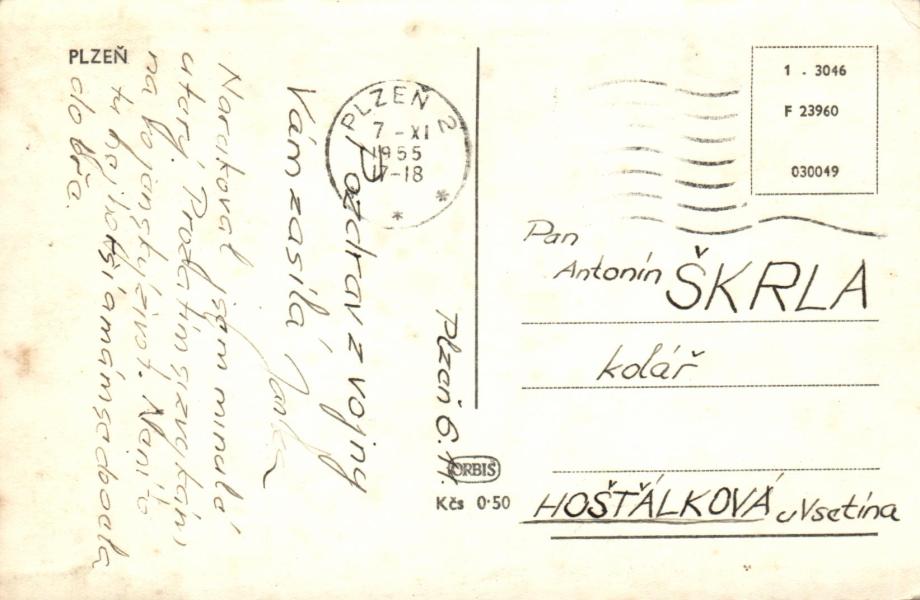 PLZEŇ
Plzeň 6.11.
Pozdrav z vojny
Vám zasílá
Narukoval jsem minulé
úterý. Prozatím si zvykám
na vojanský život. Není to
tu nejhorší a mám se docela
dobře.
PLZEŇ 2
7 - XI
1955
17-18
1 - 3046
F 23960
030049
Pan
Antonín ŠKRLA
kolář
HOŠŤÁLKOVÁ u Vsetína
ORBIS
Kčs 0·50